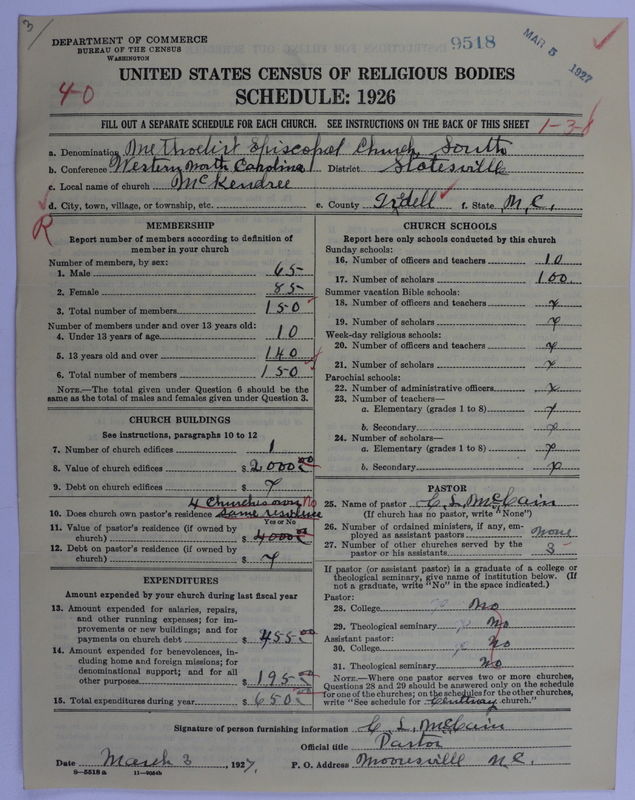 3
DEPARTMENT OF COMMERCE
BUREAU OF THE CENSUS
WASHINGTON
9518
MAR 5 1927
UNITED STATES CENSUS OF RELIGIOUS BODIES
SCHEDULE: 1926
4-0
FILL OUT A SEPARATE SCHEDULE FOR EACH CHURCH. SEE INSTRUCTIONS ON THE BACK OF THIS SHEET
1-3-8
a. Denomination Methodist Episcopal Church South
b. Conference Western North Carolina District Statesville
c. Local name of church McKendree
d. City, town, village, or township, etc. e. County Iredell f. State N.C.
R
MEMBERSHIP
Report number of members according to definition of member in your church
Number of members, by sex:
1. Male 65
2. Female 85
3. Total number of members 150
Number of members under and over 13 years old:
4. Under 13 years of age 10
5. 13 years old and over 140
6. Total number of members 150
NOTE.—The total given under Question 6 should be the same as the total of males and females given under Question 3.
CHURCH BUILDINGS
See instructions, paragraphs 10 to 12
7. Number of church edifices 1
8. Value of church edifices $ 2000 00
9. Debt on church edifices $
4 Churches own No
10. Does church own pastor's residence same residence
Yes or No
11. Value of pastor's residence (if owned by church) $ 4000
12. Debt on pastor's residence (if owned by church) $
EXPENDITURES
Amount expended by your church during last fiscal year
13. Amount expended for salaries, repairs, and other running expenses; for improvements or new buildings; and for payments on church debt $ 455 00
14. Amount expended for benevolences, including home and foreign missions; for denominational support; and for all other purposes $ 195
15. Total expenditures during year $ 650
CHURCH SCHOOLS
Report here only schools conducted by this church
Sunday schools:
16. Number of officers and teachers 10
17. Number of scholars 100
Summer vacation Bible schools:
18. Number of officers and teachers x
19. Number of scholars x
Week-day religious schools:
20. Number of officers and teachers x
21. Number of scholars x
Parochial schools:
22. Number of administrative officers x
23. Number of teachers—
a. Elementary (grades 1 to 8) x
b. Secondary x
24. Number of scholars—
a. Elementary (grades 1 to 8) x
b. Secondary x
PASTOR
25. Name of pastor C. L. McCain
(If church has no pastor, write "None")
26. Number of ordained ministers, if any, employed as assistant pastors None
27. Number of other churches served by the pastor or his assistants 3
If pastor (or assistant pastor) is a graduate of a college or theological seminary, give name of institution below. (If not a graduate, write "No" in the space indicated.)
Pastor:
28. College No
29. Theological seminary No
Assistant pastor:
30. College No
31. Theological seminary No
NOTE.—Where one pastor serves two or more churches, Questions 28 and 29 should be answered only on the schedule for one of the churches; on the schedules for the other churches, write "See schedule for church."
Signature of person furnishing information C. L. McCain
Official title Pastor
Date March 3, 1927. P. O. Address Mooresville N.C.
8—5518a 11—9054b